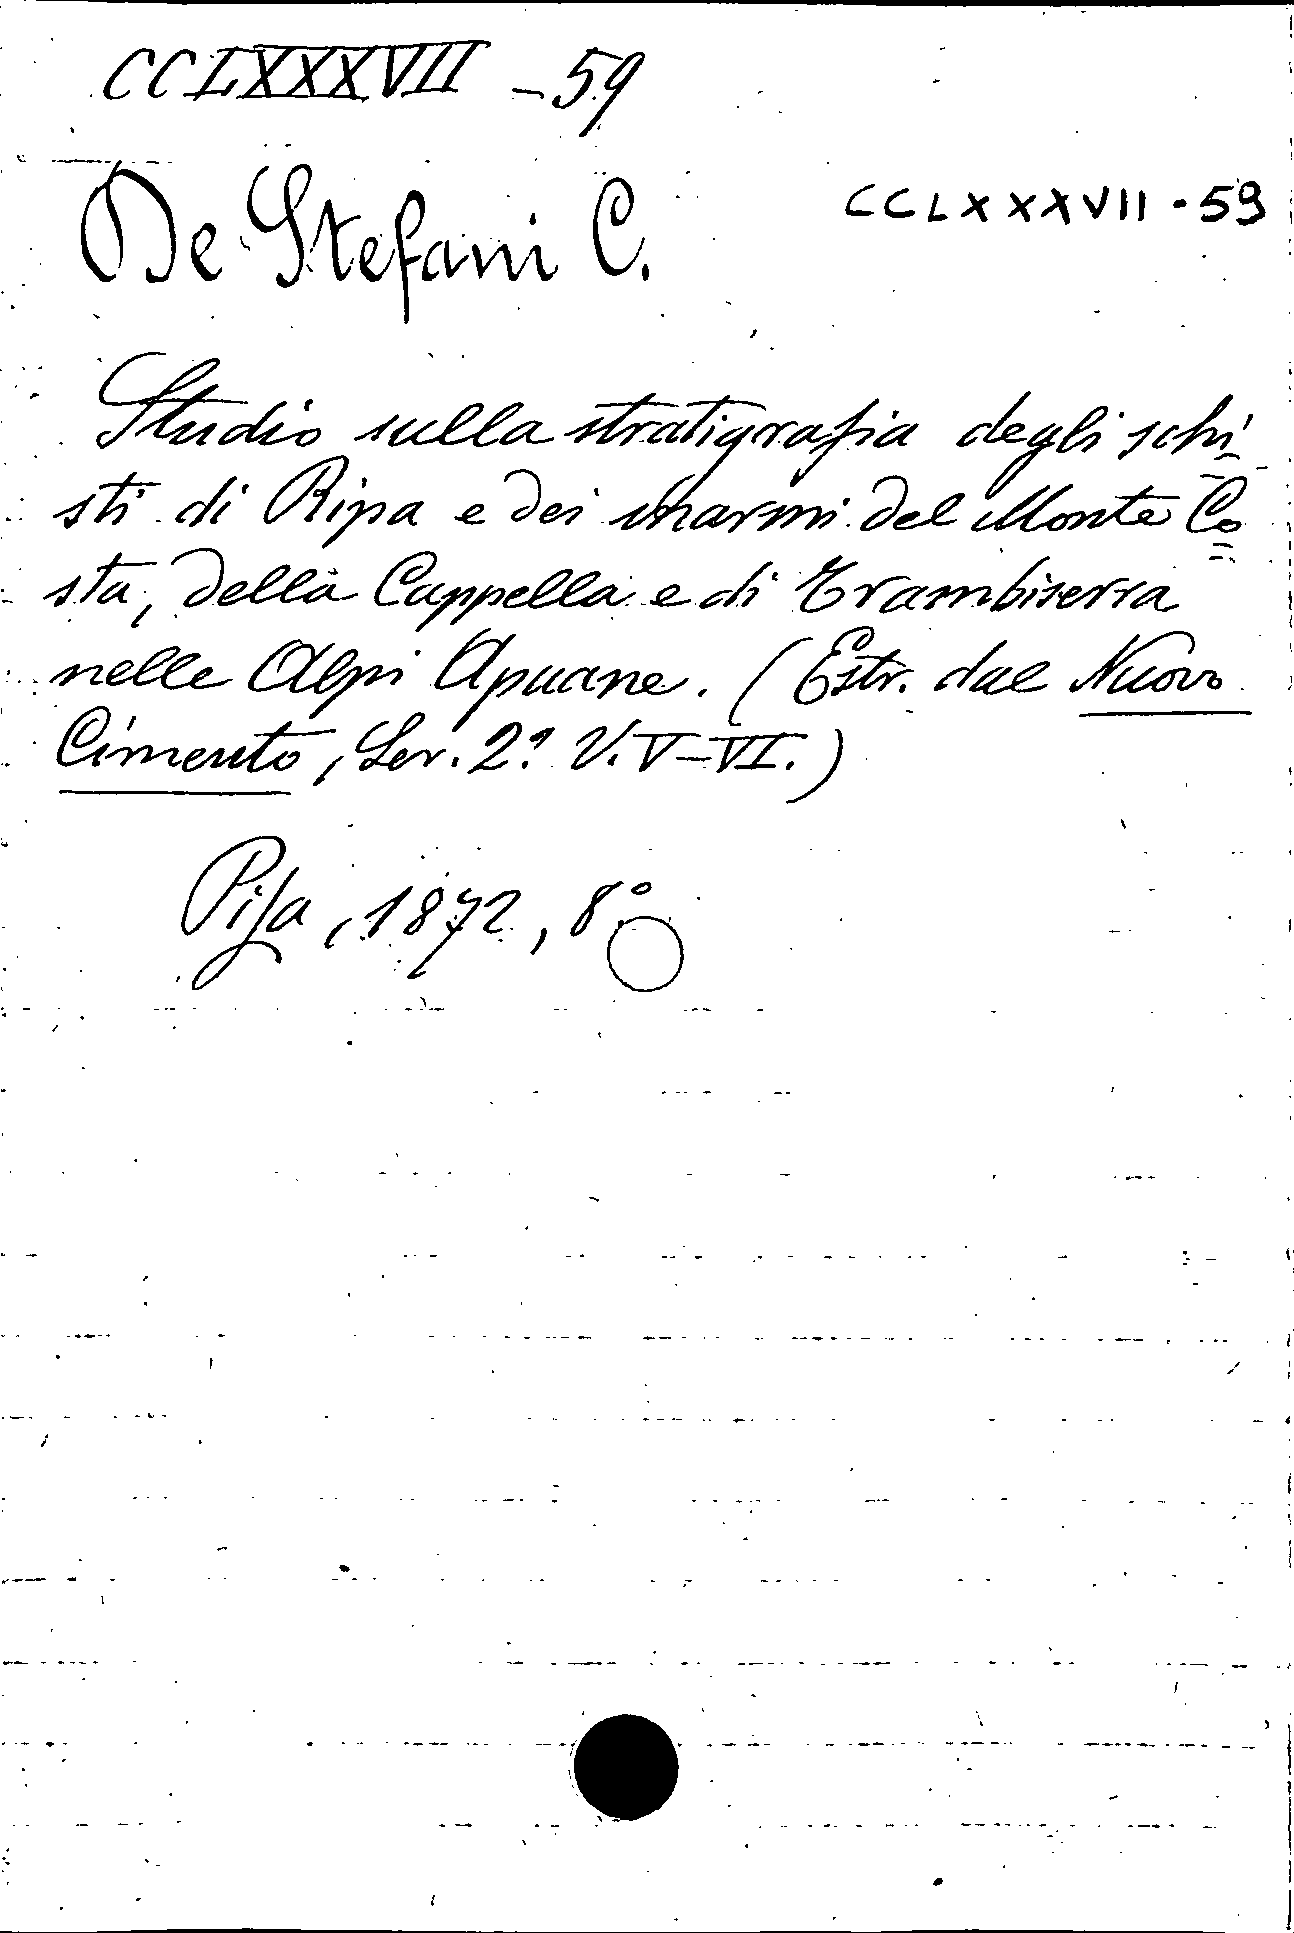 CCLXXXVII - 59
De Stefani C.
CCLXXXVII - 59
Studio sulla stratigrafia degli schi-
sti di Ripa e dei marmi del Monte Co=
sta, della Cappella e di Trambiserra
nelle Alpi Apuane. (Estr. dal Nuovo
Cimento, Ser. 2ª V. V-VI.)
Pisa, 1872, 8º